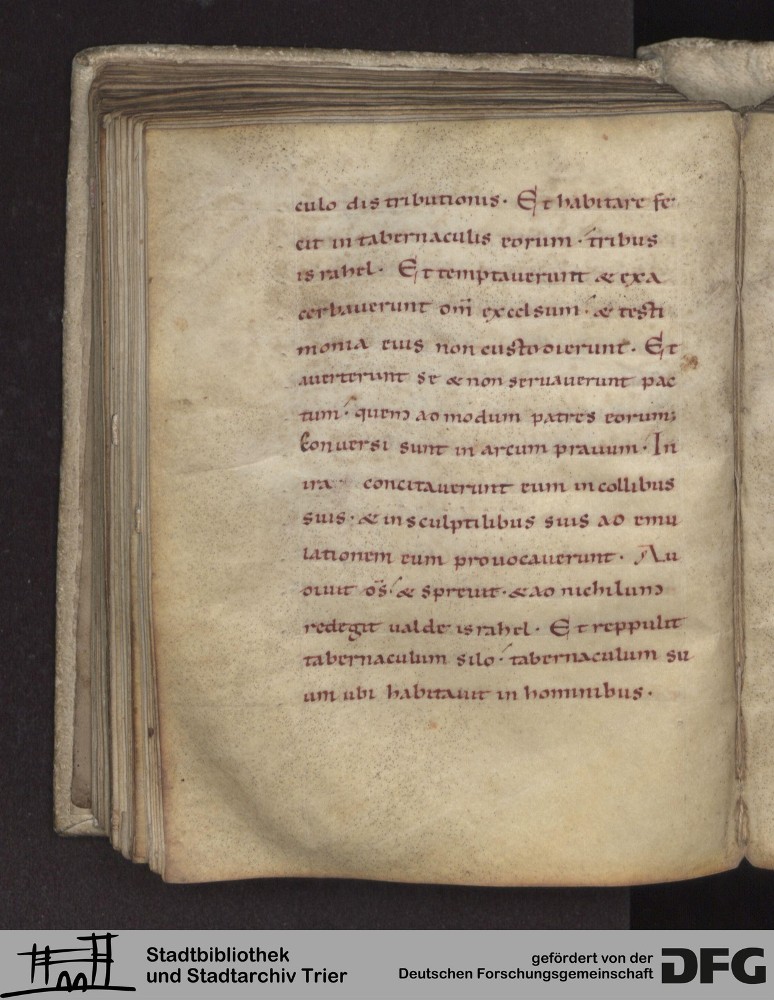 culo distributionis. Et habitare fe
cit in tabernaculis eorum. tribus
israhel. Et temptaverunt & exa
cerbaverunt dm̄ excelsum. & testi
monia eius non custodierunt. Et
averterunt se & non servaverunt pac
tum. quem admodum patres eorum;
Conversi sunt in arcum pravum. In
ira concitaverunt eum in collibus
suis. & in sculptilibus suis ad emu
lationem eum provocaverunt. Au
divit ds̄. & sprevit. & ad nichilum
redegit valde israhel. Et reppulit
tabernaculum silo. tabernaculum su
um ubi habitavit in hominibus.
Stadtbibliothek
und Stadtarchiv Trier
gefördert von der
Deutschen Forschungsgemeinschaft
DFG